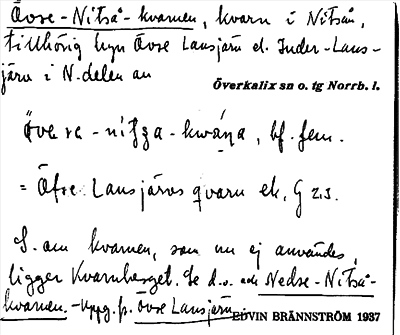 Övse-Nitså-kvarnen, kvarn i Nitsån,
tillhörig byn Övse Lansjärv el. Inder-Lans-
järv i N. delen av
Överkalix sn o. tg Norrb. l.
bf. fem.
= Öfre Lansjärvs qvarn ek. G 23.
S. om kvarnen, som nu ej användes,
ligger Kvarnberget. Se d.o. och Nedre-Nitså-
kvarnen. - Uppg. fr. övse Lansjärv
EDVIN BRÄNNSTRÖM 1937